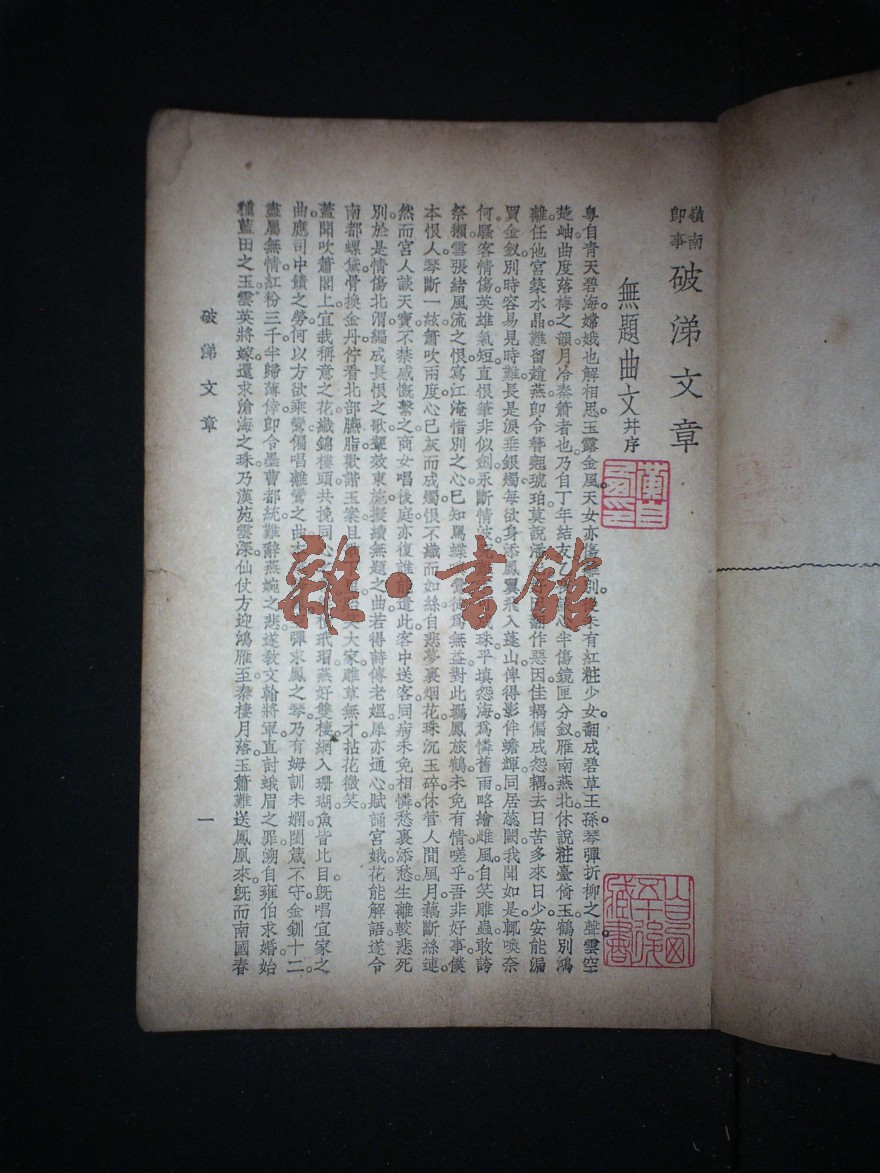 嶺南
即事
破涕文章
無題曲文并序
粵自青天碧海嫦娥也解相思。玉露金風天女亦傷離別。有紅粧少女翻成碧草王孫琴彈折柳之聲。雲空
楚岫曲度落梅之韻月冷秦簫者也。乃自丁年結友乙半傷鏡匣分釵雁南燕北休說粧臺倚玉鶴別鴻
離任他宮築水晶難留趙燕即令簪翹琥珀莫說作惡因佳耦偏成怨耦去日苦多來日少安能漏
買金釵別時容易見時難長是淚垂銀燭每欲身添鳳翼飛入蓬山俾得影伴蟾輝同居蕊闕我聞如是輒喚奈
何。騷客情傷英雄氣短直恨筆非似劍永斷情珠平填怨海為憐舊雨略繪雌風自笑雕蟲敢誇
祭獺雲張緒風流之恨寫江淹惜別之心已知為蝶為無益對此羈鳳旅鶴未免有情嗟乎吾非好事僕
本恨人琴斷一絃簫吹兩度心已灰而成燭恨不織而如絲自悲夢裏烟花珠沉玉碎休管人間風月藕斷絲連。
然而宮人談天寶不禁感慨繫之商女唱後庭亦復誰能遣此客中送客同病未免相憐愁裏添愁生離較悲死
別。於是情傷北渭編成長恨之歌顰效東施擬續無題之曲若得詩傳老嫗犀亦通心賦誦宮娥花能解語遂令
南都螺黛骨換金丹佇看北部臙脂歡諧玉案且大家雕草無才拈花微笑。
蓋聞吹簫閣上宜栽稱意之花織錦樓頭共挽同心玳瑁燕好雙棲網入珊瑚魚皆比目既唱宜家之
曲。應司中饋之勞何以方欲乘鸞偏唱離鸞之曲彈求鳳之琴乃有姆訓未嫻閨箴不守金釧十二
盡屬無情紅粉三千半歸薄倖即令墨曹都統難辭燕婉之悲遂教文翰將軍直討蛾眉之罪溯自雍伯求婚始
種藍田之玉雲英將嫁還求滄海之珠乃漢苑雲深仙仗方迎鴻雁至秦棲月落玉簫難送鳳凰來既而南國春
破涕文章
一
雜·書館